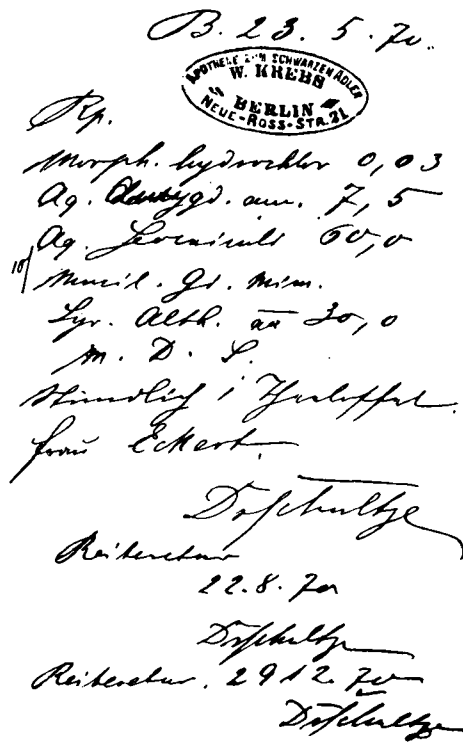 B. 23. 5. 70.
APOTHEKE ZUM SCHWARZEN ADLER
W. KREBS
BERLIN
NEUE-ROSS-STR. 21
Rp.
Morph. hydrochlor 0,03
Aq. Amygd. am. 7,5
Aq. Foeniculi 60,0
Mucil. Gi. Mim.
Syr. Alth. āā 30,0
M. D. S.
Stündlich 1 Theelöffel.
Frau Eckert.
Dr Schultze
Reiteretur
22.8.70
Dr Schultze
Reiteretur. 29 12. 70
Dr Schultze